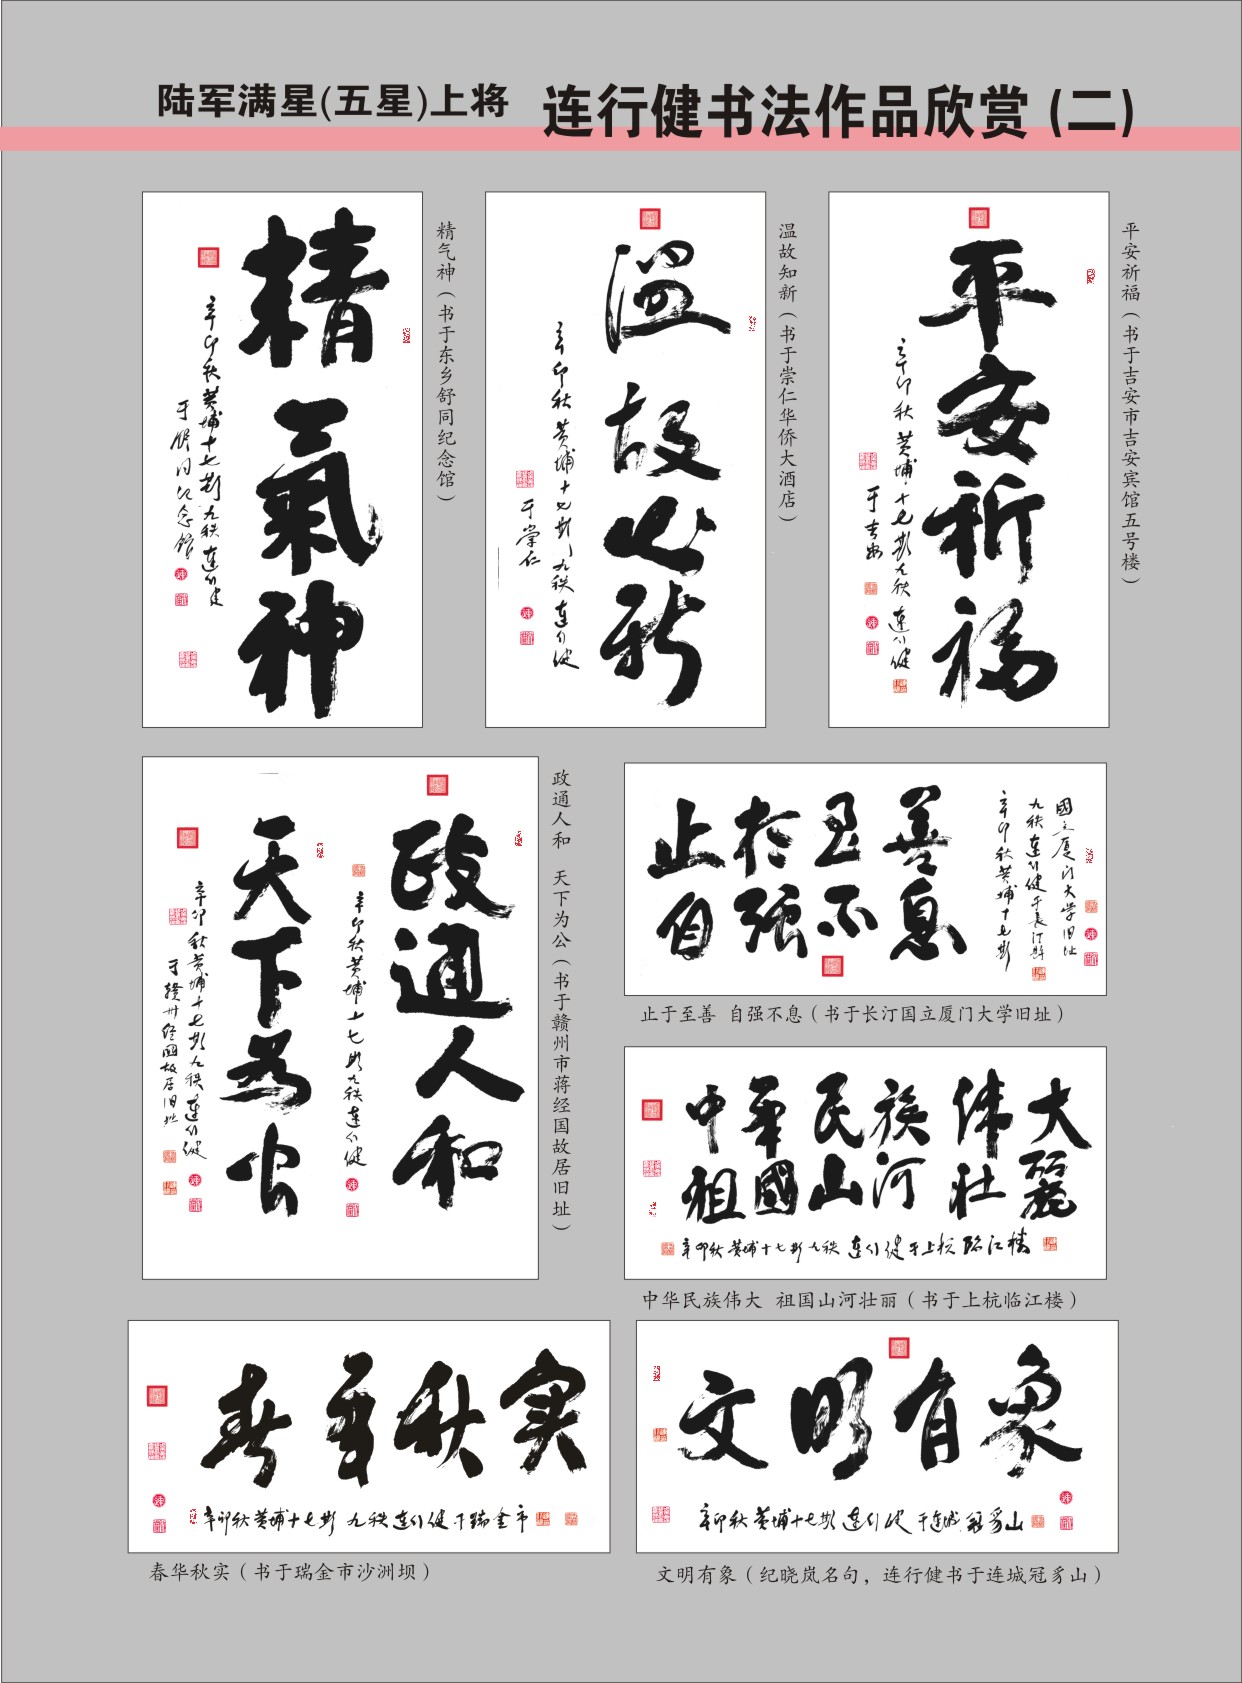 陆军满星(五星)上将 连行健书法作品欣赏(二)
精氣神
辛卯秋黄埔十七期九秩連行健
于舒同纪念館
精气神(书于东乡舒同纪念馆)
温故知新
辛卯秋黄埔十七期九秩連行健
于崇仁
温故知新(书于崇仁华侨大酒店)
平安祈福
辛卯秋黄埔十七期九秩連行健
于吉安
平安祈福(书于吉安市吉安宾馆五号楼)
政通人和
辛卯秋黄埔十七期九秩連行健
天下為公
辛卯秋黄埔十七期九秩連行健
于贛州经國故居旧址
政通人和 天下为公(书于赣州市蒋经国故居旧址)
止於至善
自强不息
國立厦门大学旧址
九秩連行健于長汀縣
辛卯秋黄埔十七期
止于至善 自强不息(书于长汀国立厦门大学旧址)
中華民族伟大
祖國山河壮麗
辛卯秋黄埔十七期九秩連行健于上杭临江楼
中华民族伟大 祖国山河壮丽(书于上杭临江楼)
春華秋实
辛卯秋黄埔十七期九秩連行健于瑞金市
春华秋实(书于瑞金市沙洲坝)
文明有象
辛卯秋黄埔十七期連行健于連城冠豸山
文明有象(纪晓岚名句，连行健书于连城冠豸山)